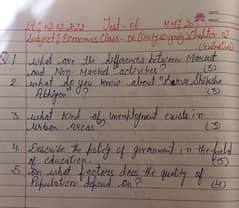 Dt: 02.02.2022 Test - 06 MM: 20
Subject: Economics Class - IX Chapter 02
Q.1 what are the differences between Market
and Non-Market activities? (3)
2. what do you know about "Sarva Shiksha
Abhiyan"? (5)
3. what kind of unemployment exists in
urban areas? (3)
4. Describe the policy of government in the field
of education. (5)
5. On what factors does the quality of
Population depend on? (4)